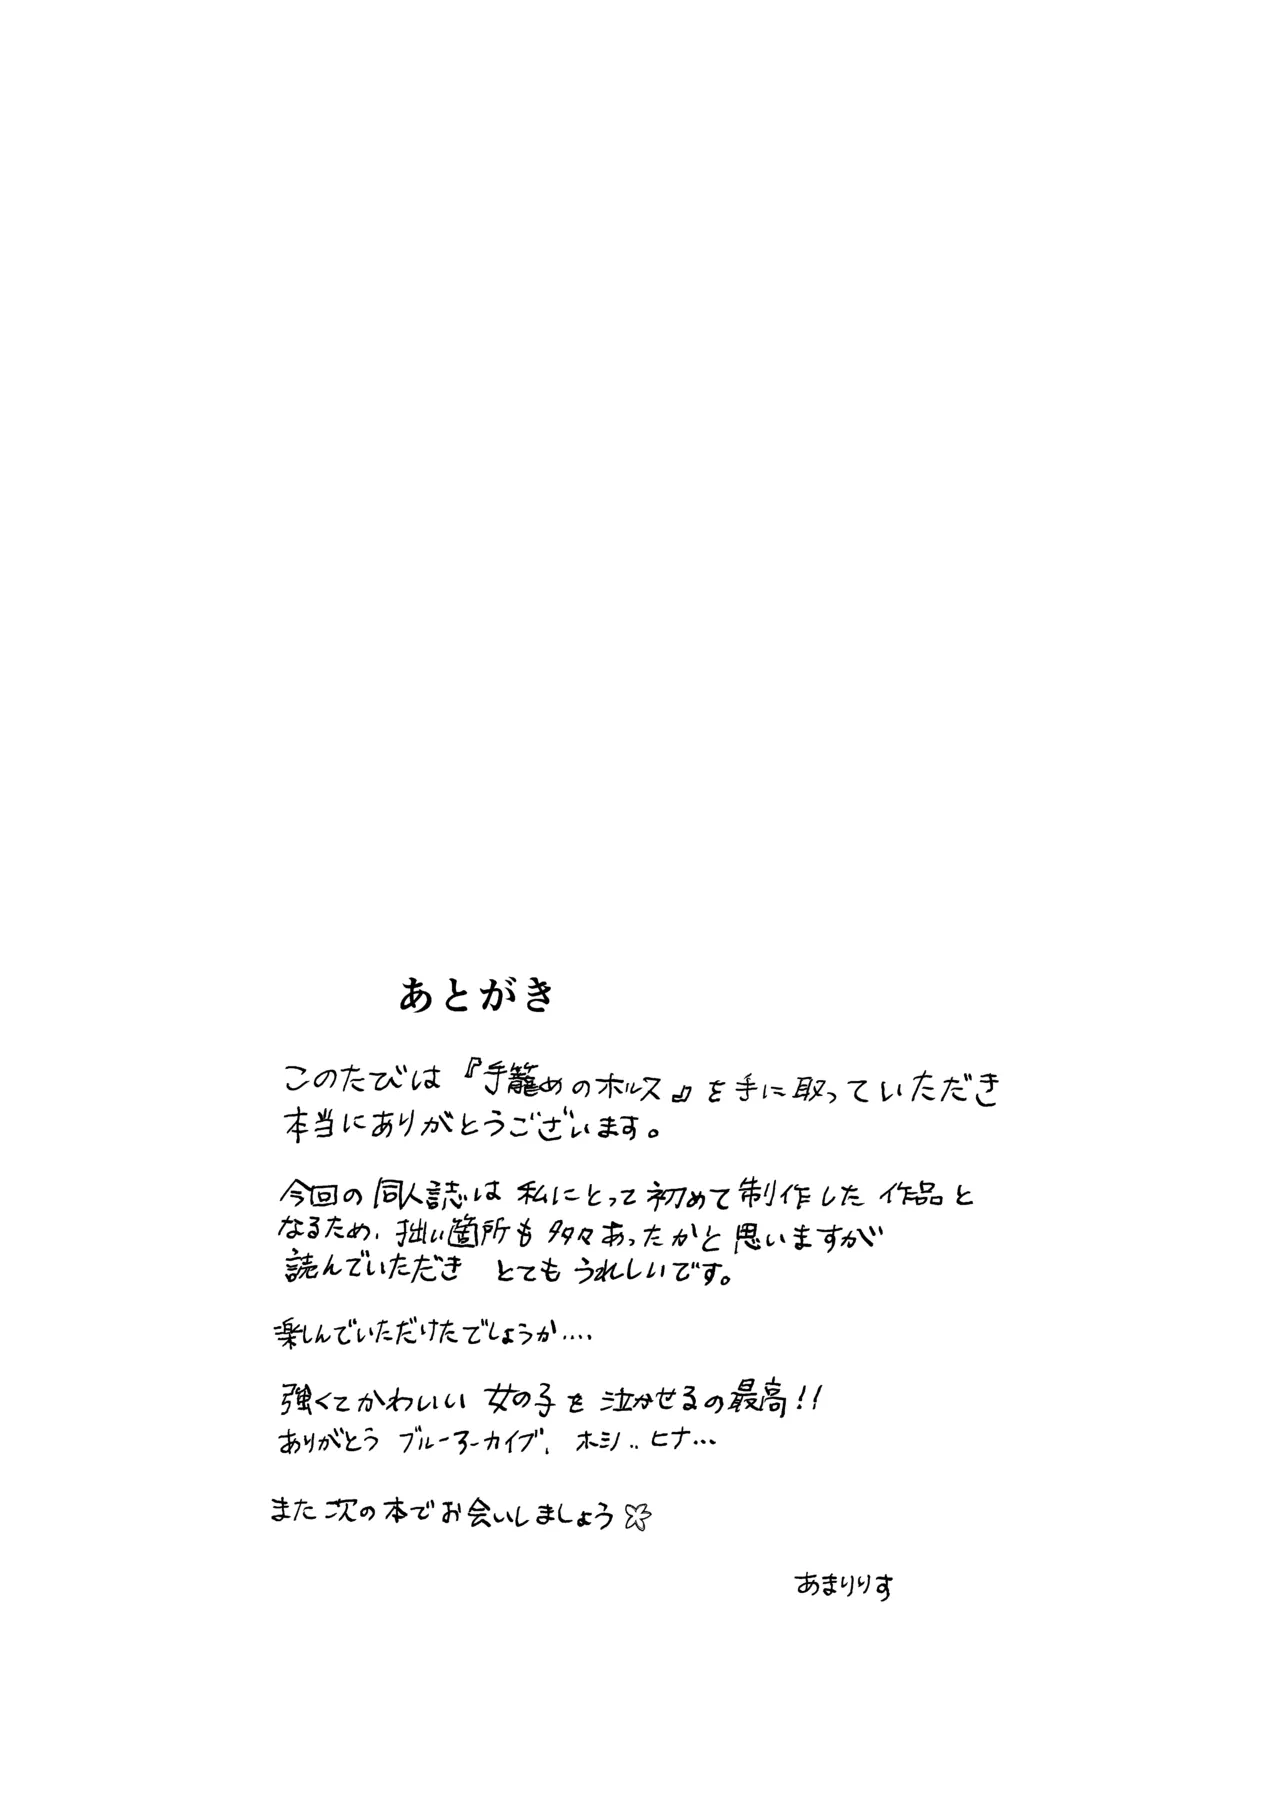 あとがき
このたびは『手籠めのホルス』を手に取っていただき
本当にありがとうございます。
今回の同人誌は私にとって初めて制作した作品と
なるため、拙い箇所も多々あったかと思いますが
読んでいただき とてもうれしいです。
楽しんでいただけたでしょうか....
強くてかわいい女の子を泣かせるの最高!!
ありがとう ブルーアーカイブ、ホシノ..ヒナ...
また次の本でお会いしましょう
あまりりす